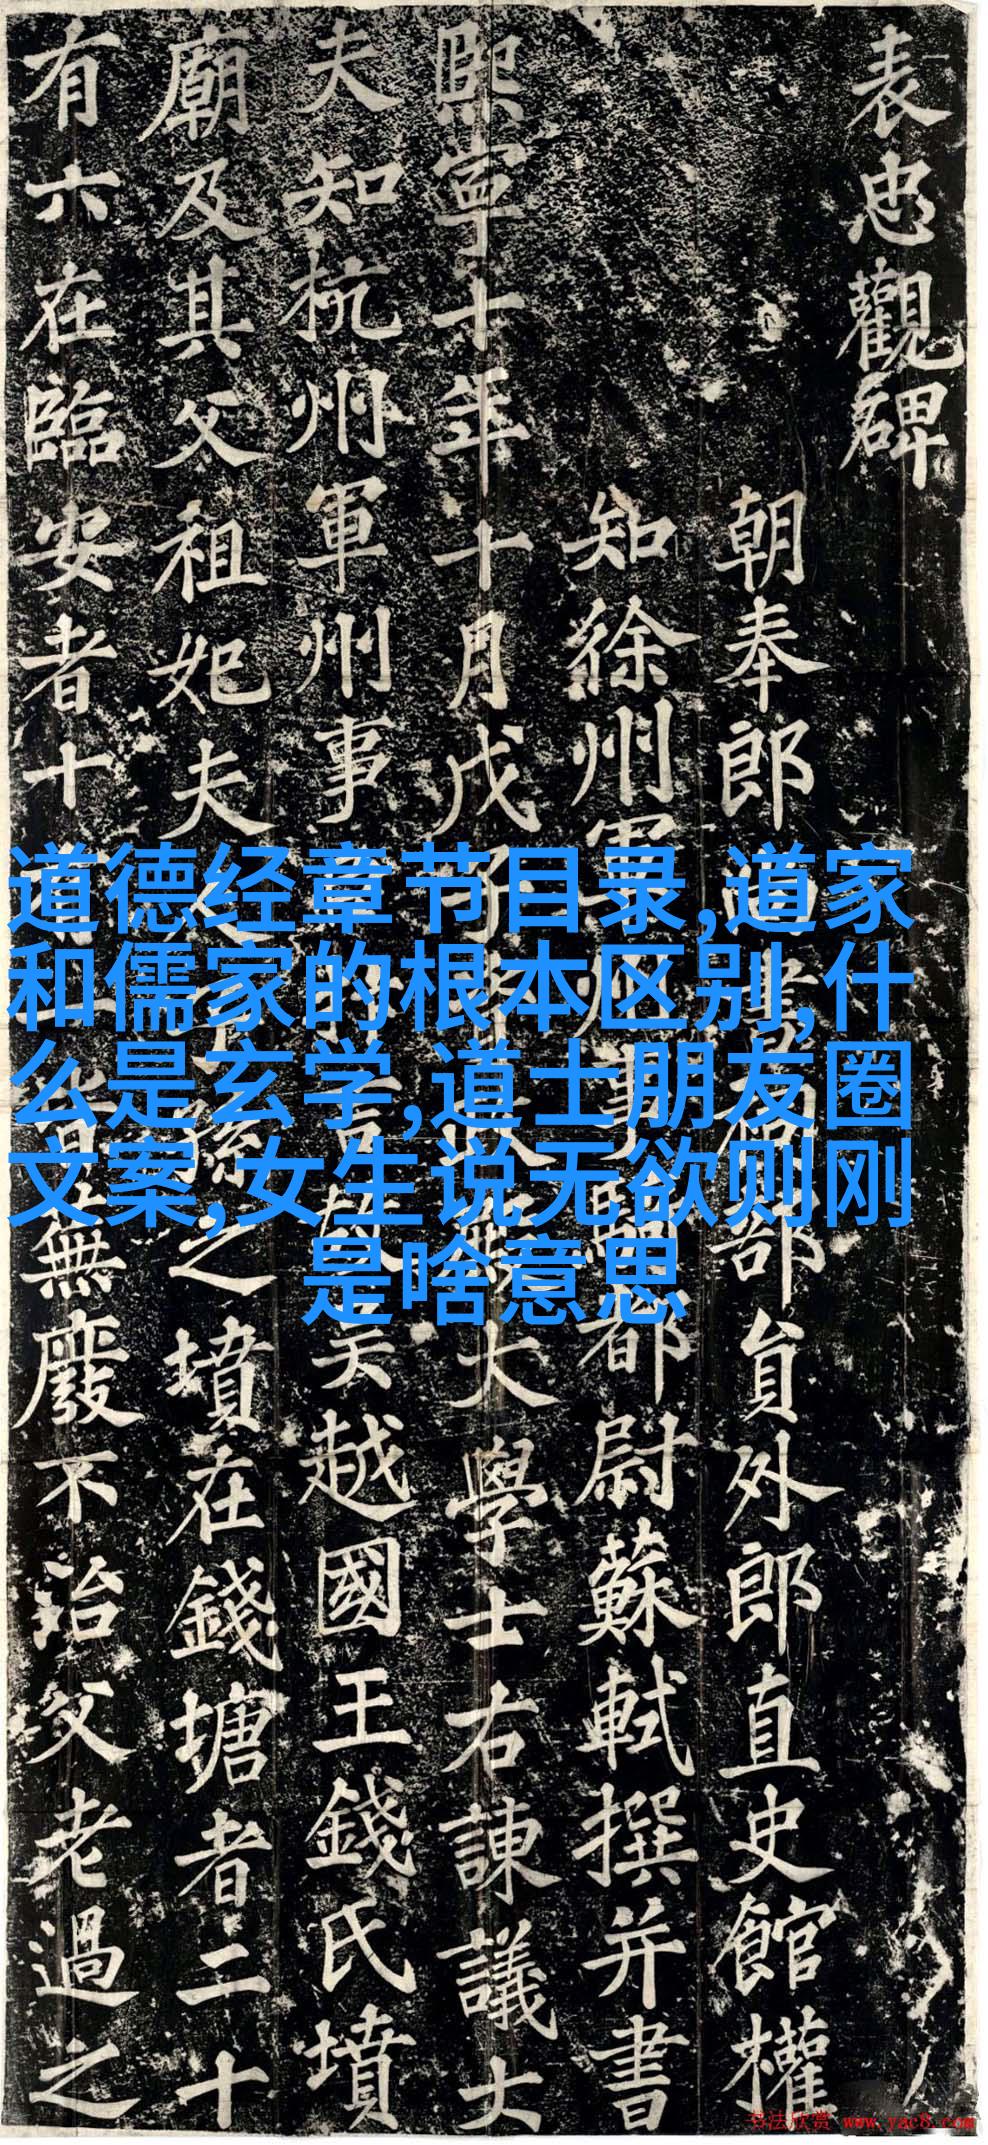 表忠觀碑
朝奉郎尚書祠部員外郎直史館權
知徐州軍州事騎都尉蘇軾撰并書
熙寧十年十月戊子資政殿大學士右諫議大
夫知杭州軍州事
言故吳越國王錢氏墳
廟及其父祖妃夫人子孫之墳在錢塘者二十
有六在臨安者十有一皆蕪廢不治父老過之
道德经章节目录,道家
和儒家的根本区别,什
么是玄学,道士朋友圈
文案,女生说无欲则刚
是啥意思
书法欣赏 www.yac8.com